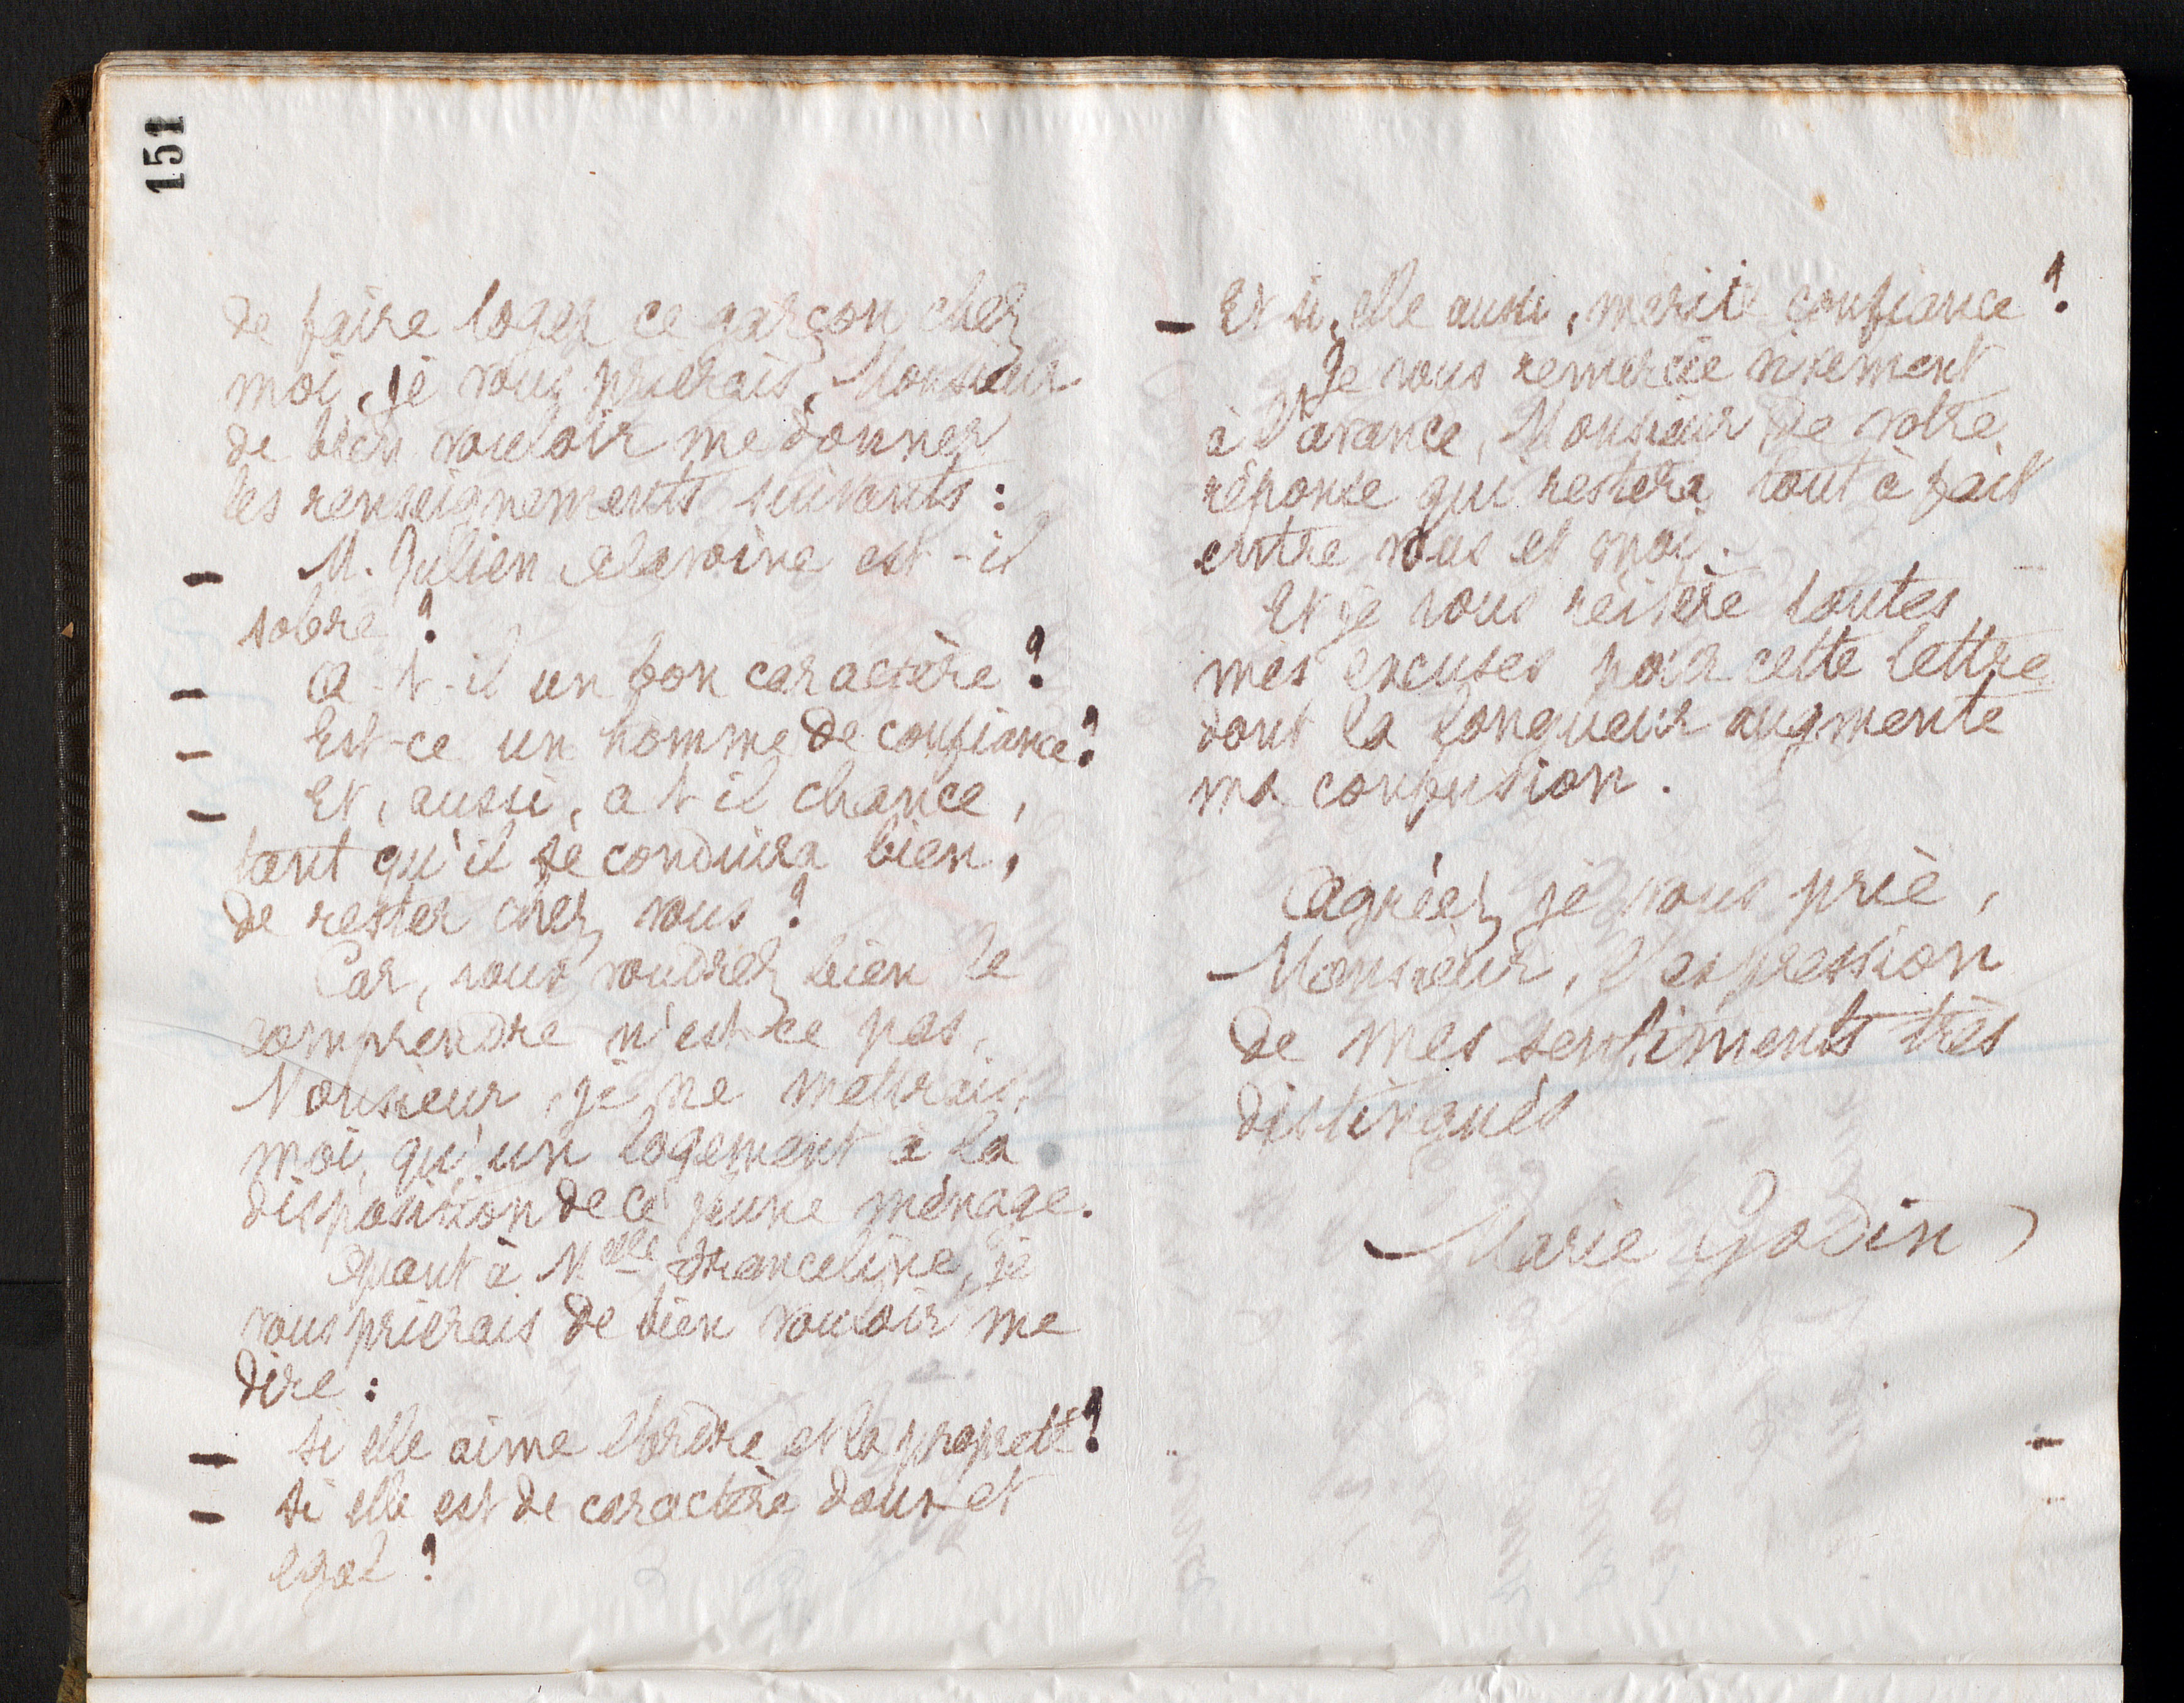 151
de faire loger ce garçon chez
moi, je vous prierais, Monsieur
de bien vouloir me donner
les renseignements suivants :
– M. Julien Delavoine est-il
sobre ?
– A-t-il un bon caractère ?
– Est-ce un homme de confiance ?
– Et, aussi, a t il chance,
tant qu'il se conduira bien,
de rester chez vous ?
Car, vous voudrez bien le
comprendre n'est-ce pas,
Monsieur, je ne mettrais,
moi, qu'un logement à la
disposition de ce jeune ménage.
Quant à Melle Franceline, je
vous prierais de bien vouloir me
dire :
– si elle aime l'ordre et la propreté ?
– si elle est de caractère doux et
egal ?
– Et si, elle aussi, mérite confiance ?
Je vous remercie vivement
à l'avance, Monsieur, de votre
réponse qui restera tout à fait
entre vous et moi.
Et je vous réitère toutes
mes excuses pour cette lettre
dont la longueur augmente
ma confusion.
Agréez, je vous prie,
Monsieur, l'expression
de mes sentiments très
distingués
Marie Godin